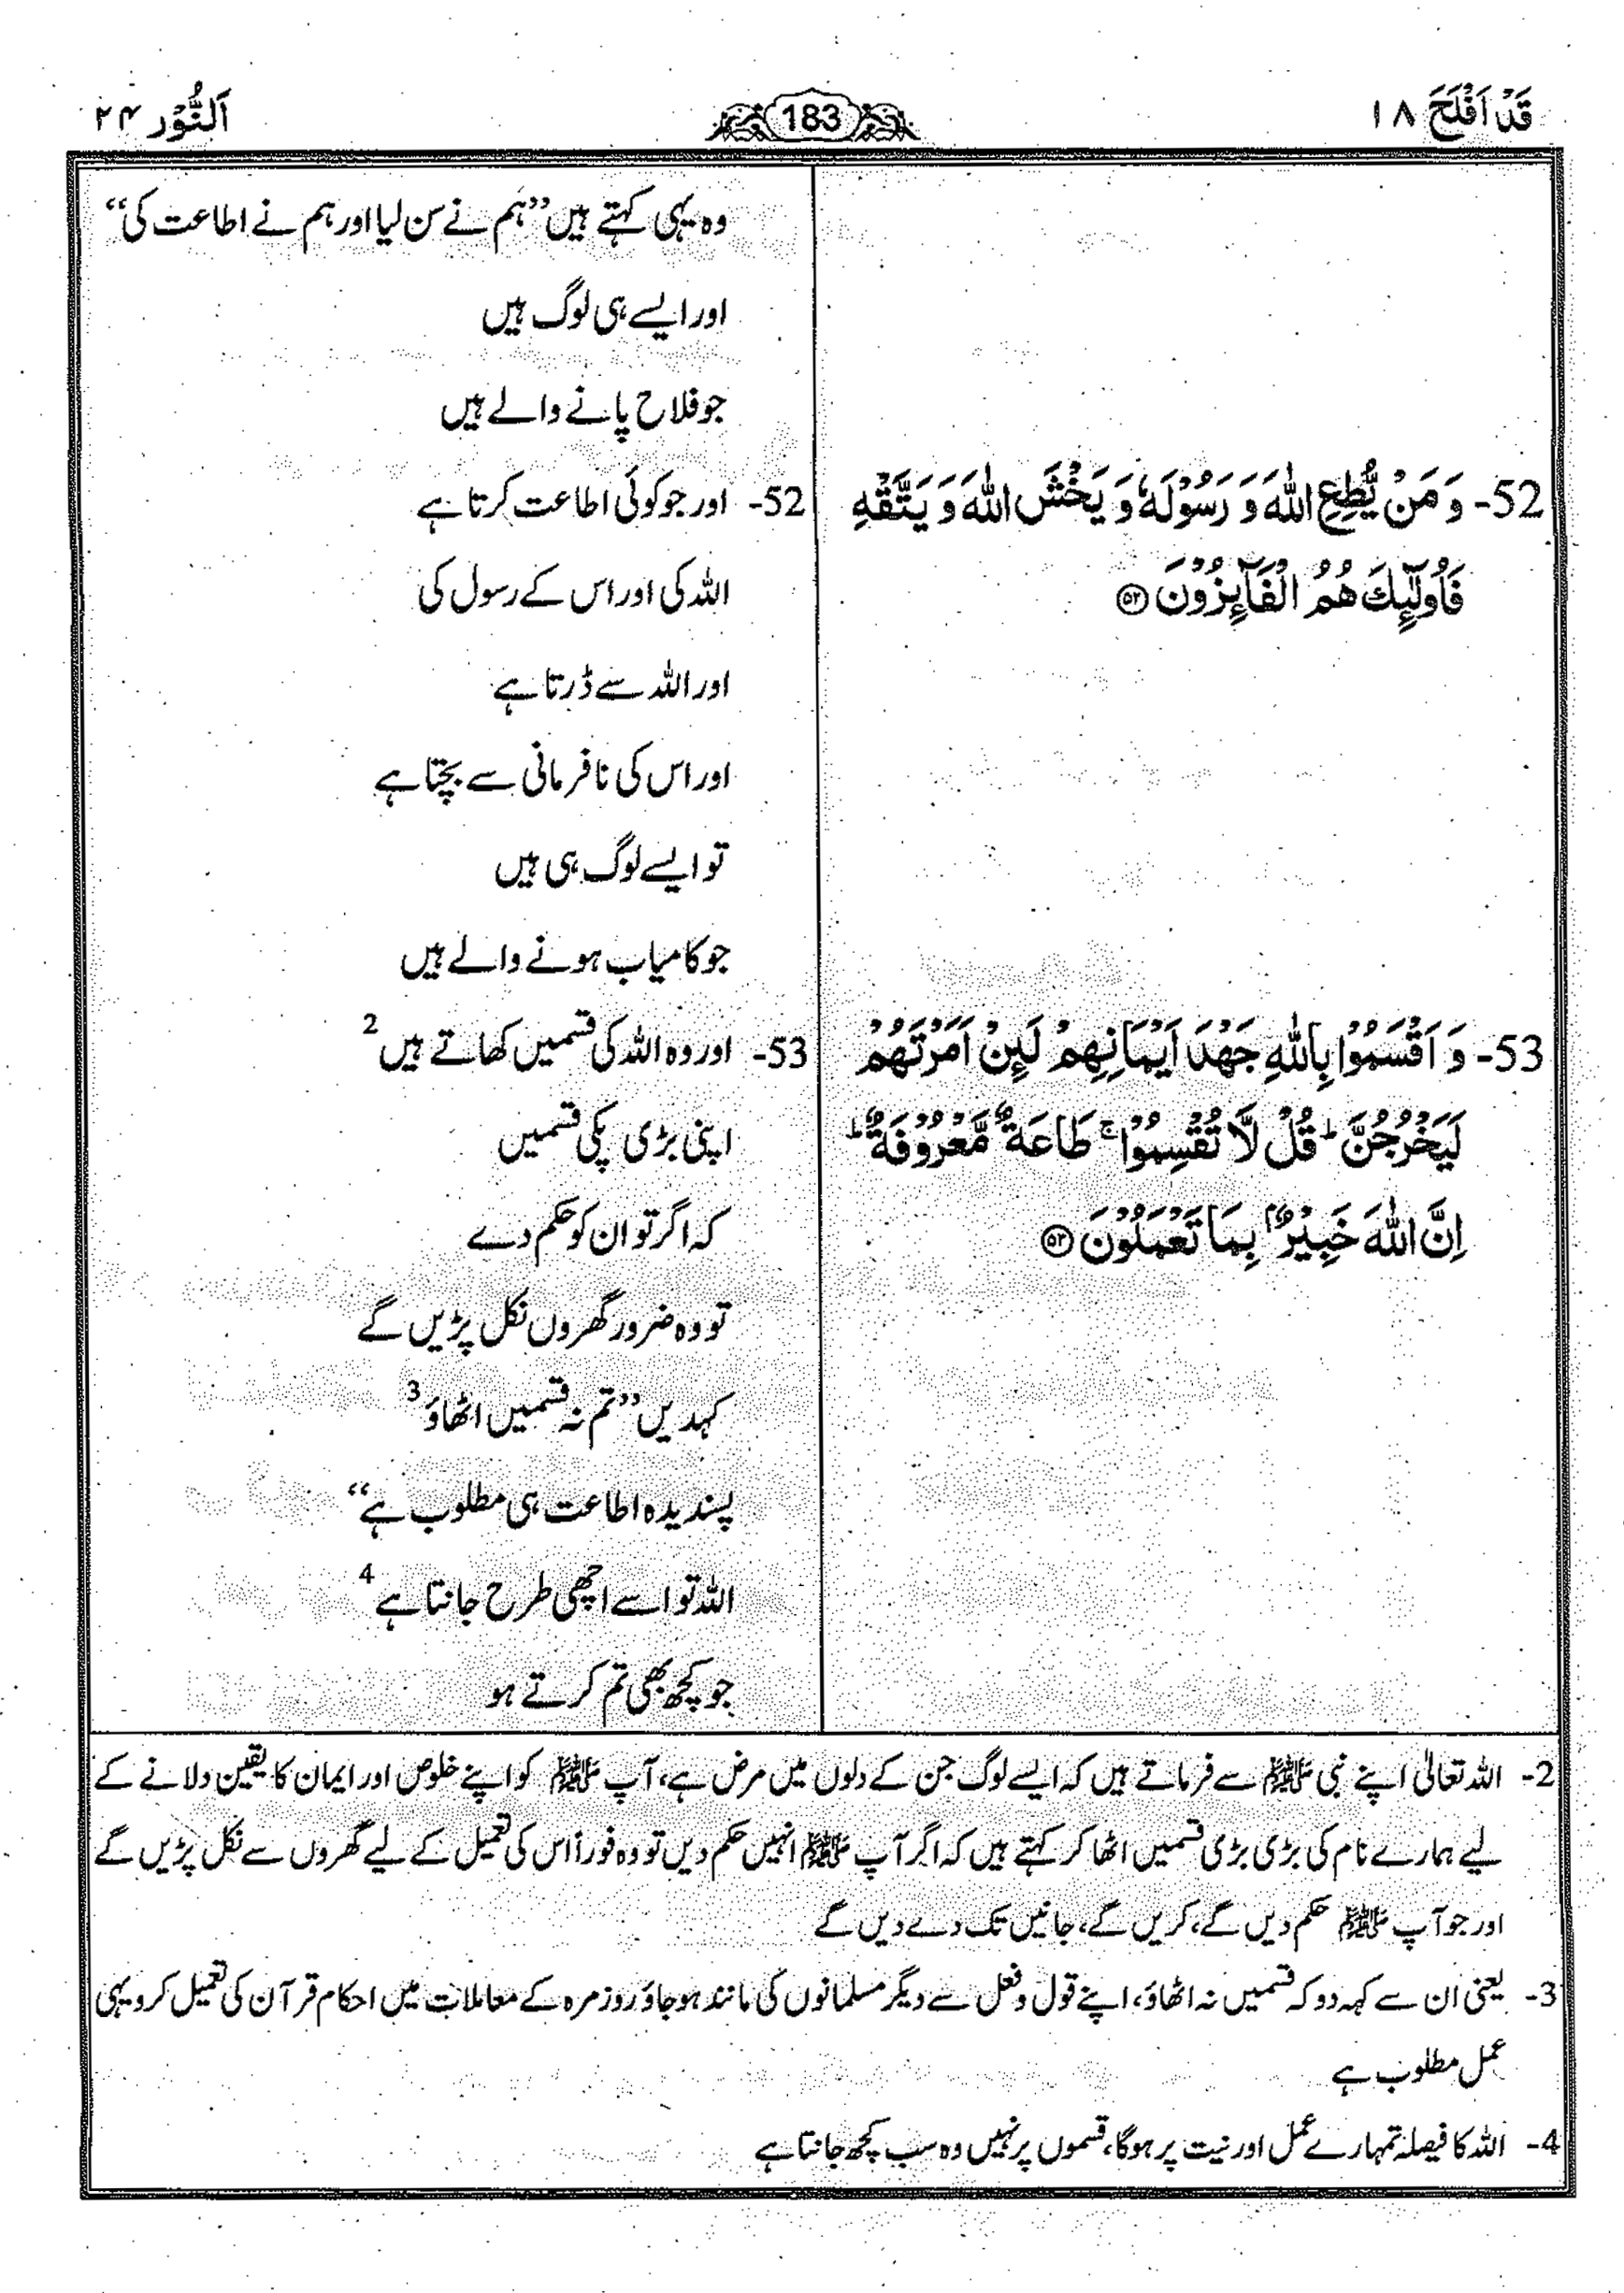 قَدْ اَفْلَحَ ۱۸
183
اَلنُّوْر ۲۴
وہ یہی کہتے ہیں ’’ہم نے سن لیا اور ہم نے اطاعت کی‘‘
اور ایسے ہی لوگ ہیں
جو فلاح پانے والے ہیں
52- وَ مَنْ یُّطِعِ اللّٰهَ وَ رَسُوْلَهٗ وَ یَخْشَ اللّٰهَ وَ یَتَّقْهِ
فَاُولٰٓىِٕكَ هُمُ الْفَآىِٕزُوْنَ ۝۵۲
52- اور جو کوئی اطاعت کرتا ہے
اللہ کی اور اس کے رسول کی
اور اللہ سے ڈرتا ہے
اور اس کی نافرمانی سے بچتا ہے
تو ایسے لوگ ہی ہیں
جو کامیاب ہونے والے ہیں
53- وَ اَقْسَمُوْا بِاللّٰهِ جَهْدَ اَیْمَانِهِمْ لَىِٕنْ اَمَرْتَهُمْ
لَیَخْرُجُنَّ ؕ قُلْ لَّا تُقْسِمُوْا ۚ طَاعَةٌ مَّعْرُوْفَةٌ ؕ
اِنَّ اللّٰهَ خَبِیْرٌۢ بِمَا تَعْمَلُوْنَ ۝۵۳
53- اور وہ اللہ کی قسمیں کھاتے ہیں 2
اپنی بڑی پکی قسمیں
کہ اگر تو ان کو حکم دے
تو وہ ضرور گھروں نکل پڑیں گے
کہدیں ’’تم نہ قسمیں اٹھاؤ 3
پسندیدہ اطاعت ہی مطلوب ہے‘‘
اللہ تو اسے اچھی طرح جانتا ہے 4
جو کچھ بھی تم کرتے ہو
2- اللہ تعالیٰ اپنے نبی ﷺ سے فرماتے ہیں کہ ایسے لوگ جن کے دلوں میں مرض ہے، آپ ﷺ کو اپنے خلوص اور ایمان کا یقین دلانے کے
لیے ہمارے نام کی بڑی بڑی قسمیں اٹھا کر کہتے ہیں کہ اگر آپ ﷺ انہیں حکم دیں تو وہ فوراً اس کی تعمیل کے لیے گھروں سے نکل پڑیں گے
اور جو آپ ﷺ حکم دیں گے، کریں گے، جانیں تک دے دیں گے
3- یعنی ان سے کہہ دو کہ قسمیں نہ اٹھاؤ، اپنے قول و فعل سے دیگر مسلمانوں کی مانند ہو جاؤ روز مرہ کے معاملات میں احکام قرآن کی تعمیل کرو یہی
عمل مطلوب ہے
4- اللہ کا فیصلہ تمہارے عمل اور نیت پر ہوگا، قسموں پر نہیں وہ سب کچھ جانتا ہے